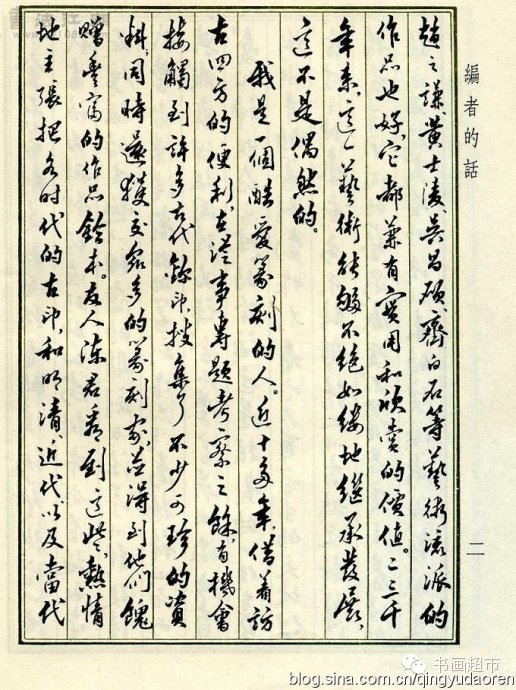 編者的話
趙之謙、黃士陵、吳昌碩、齊白石等藝術流派的
作品也好，它都兼有實用和欣賞的價值。二三千
年來，這一藝術能够不絕如縷地繼承發展，
這不是偶然的。
我是一個酷愛篆刻的人。近十多年，借着訪
古四方的便利，在從事專題考察之餘，有機會
接觸到許多古代鉨印，搜集了不少可珍的資
料，同時還獲交衆多的篆刻家，並得到他們餽
贈豐富的作品鈐本。友人陳君看到這些，熱情
地主張把各時代的古印，和明清、近代以及當代
二
书画超市
blog.sina.com.cn/qingyudaoren